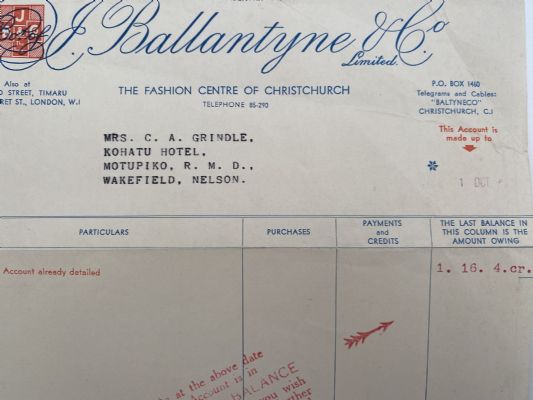 J. Ballantyne & Co
Limited.
Also at
STREET, TIMARU
ST., LONDON, W.1
THE FASHION CENTRE OF CHRISTCHURCH
TELEPHONE 85-290
P.O. BOX 1460
Telegrams and Cables:
"BALTYNECO"
CHRISTCHURCH, C.1
This Account is
made up to
1 OCT
MRS. C. A. GRINDLE,
KOHATU HOTEL,
MOTUPIKO, R. M. D.,
WAKEFIELD, NELSON.
PARTICULARS
PURCHASES
PAYMENTS
and
CREDITS
THE LAST BALANCE IN
THIS COLUMN IS THE
AMOUNT OWING
Account already detailed
1. 16. 4.cr.
at the above date
Account is in
BALANCE
you wish